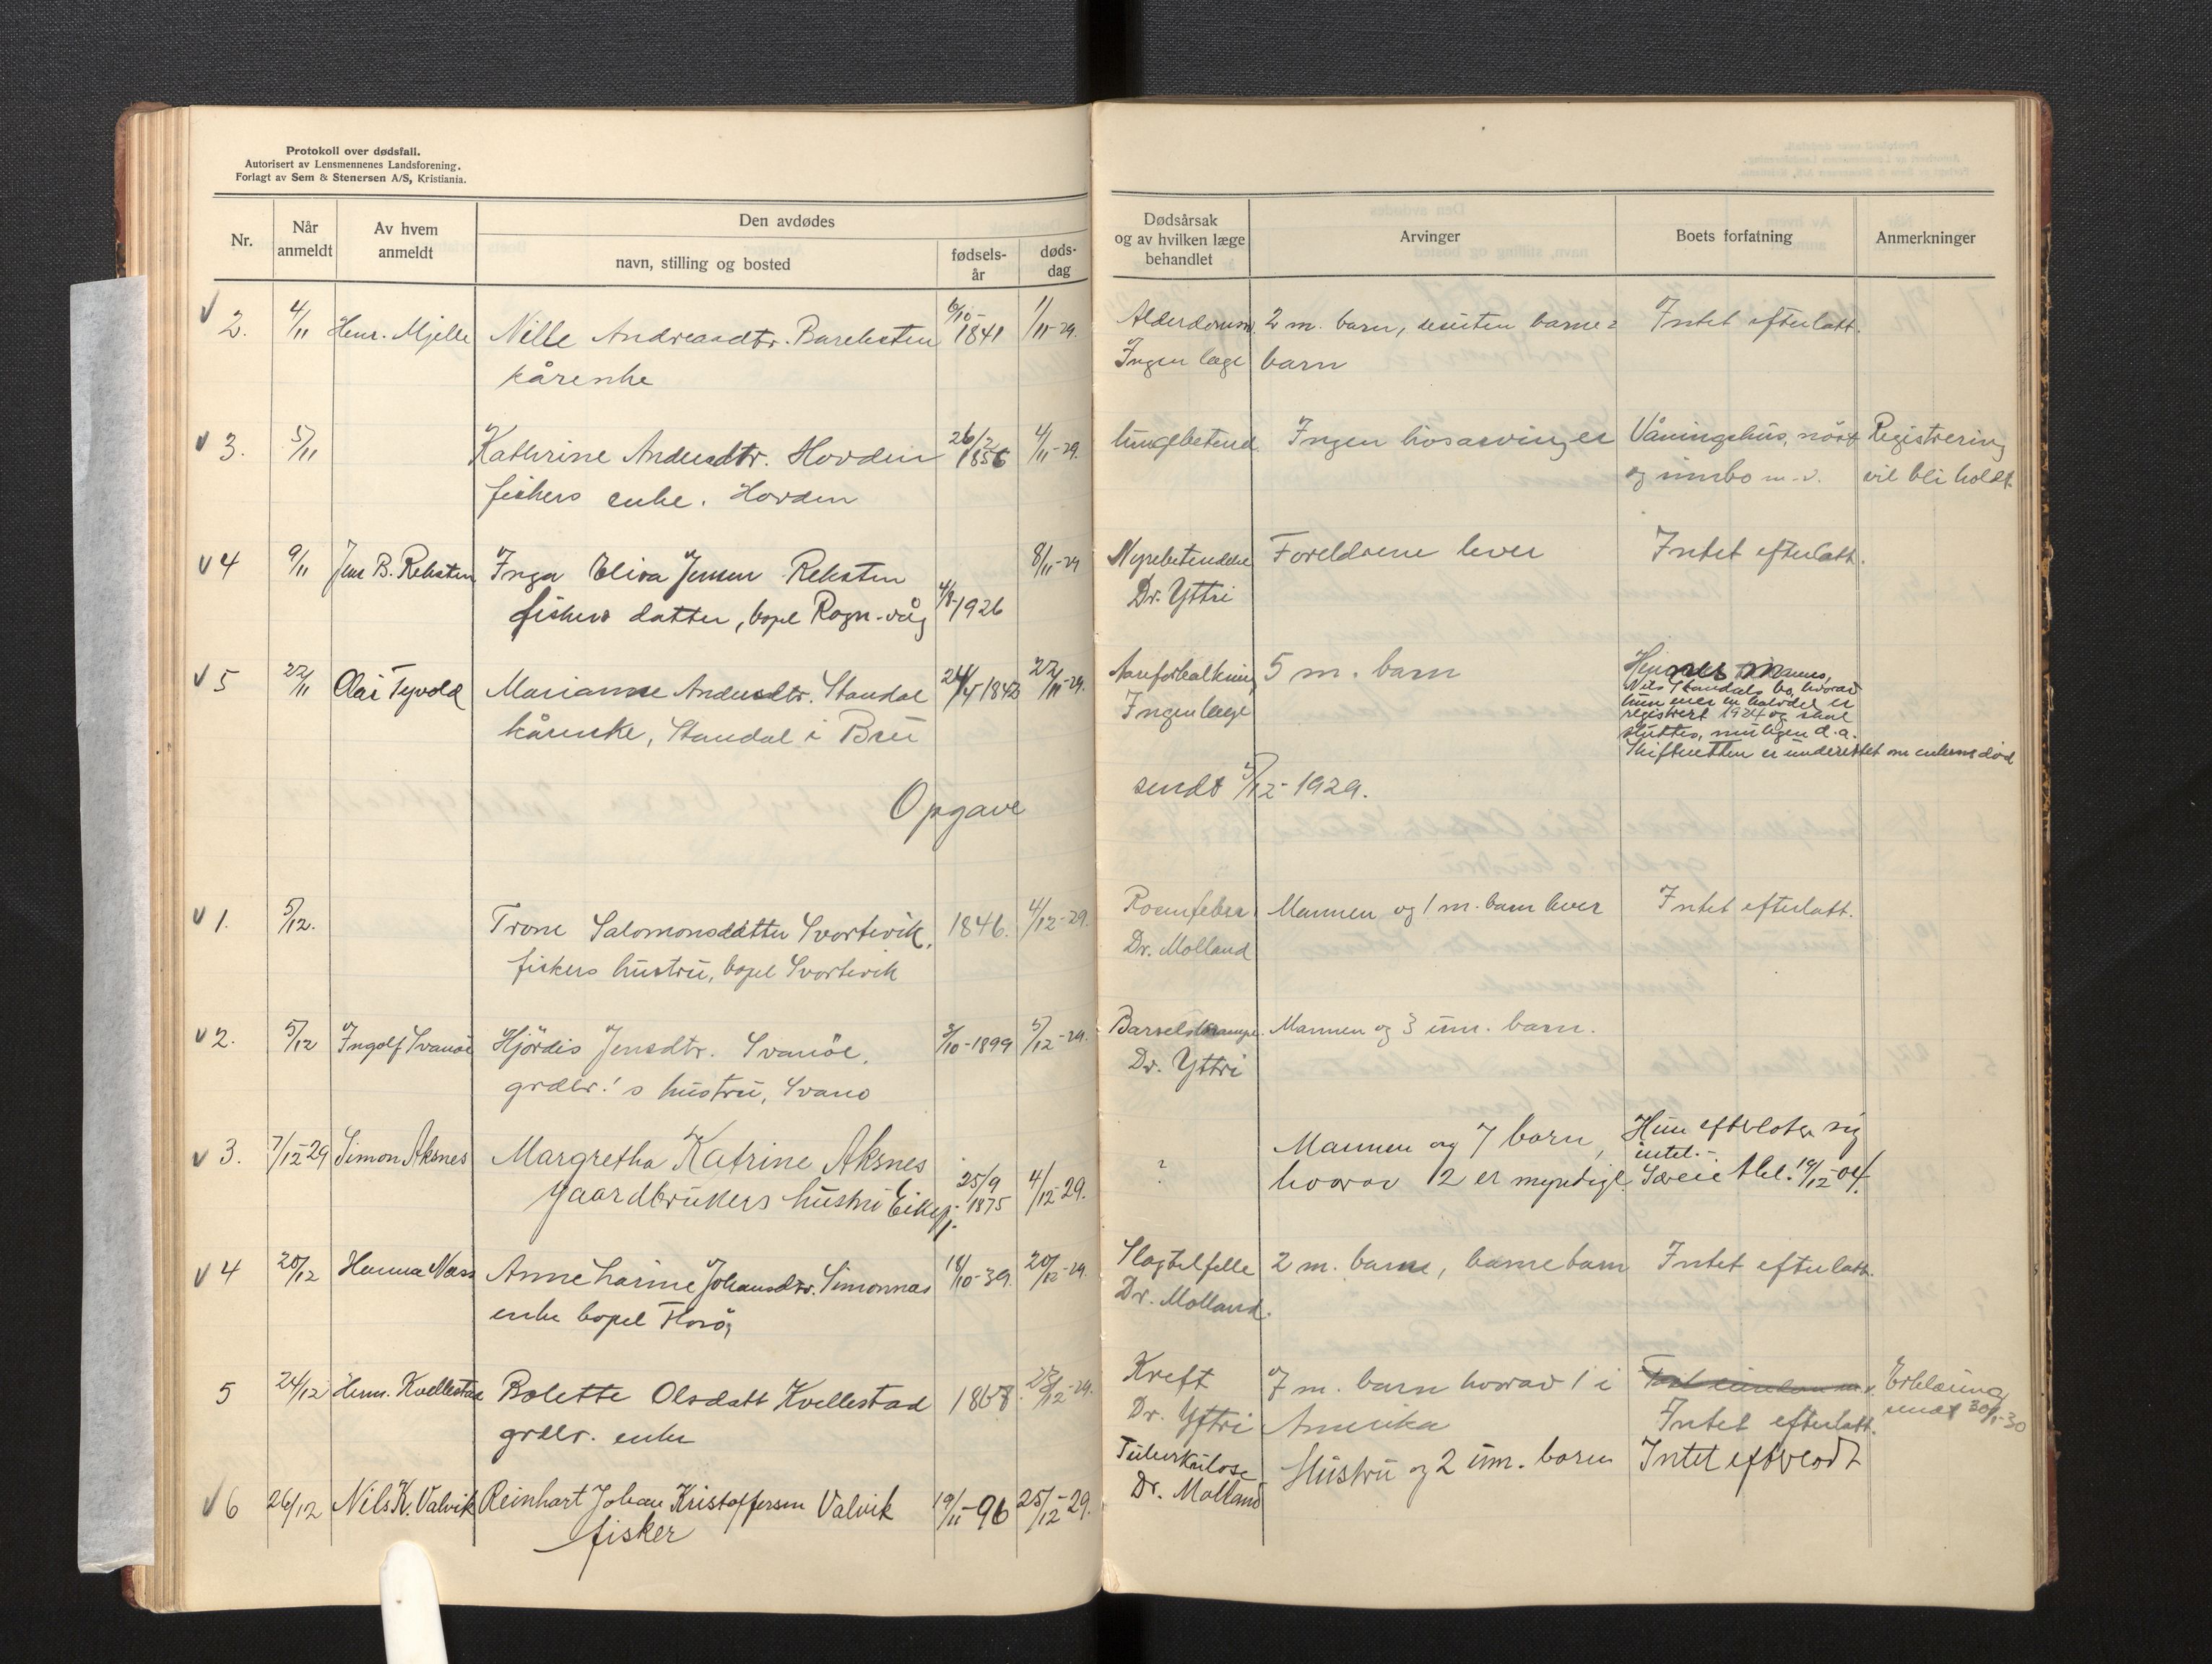 Protokoll over dødsfall.
Autorisert av Lensmennenes Landsforening.
Forlagt av Sem & Stenersen A/S, Kristiania.
Nr. Når anmeldt Av hvem anmeldt Den avdødes navn, stilling og bosted fødselsår dødsdag Dødsårsak og av hvilken læge behandlet Arvinger Boets forfatning Anmerkninger
v 2. 4/11 Henr. Mjelle Nille Andreasdtr. Bareksten 6/10-1841 1/11-29. Alderdomsv. 2 m. barn, desuten barne= Intet efterlatt.
kårenke Ingen læge barn
v 3. 5/11 Kathrine Andersdtr. Hovden 26/2 1856 4/11-29. lungebetend. Ingen livsarvinger Våningshus, nöst Registrering
fiskers enke. Hovden og innbo m.v. vil bli holdt
v 4 9/11 Jens B. Reksten Inga Eliva Jensen Reksten 8/11-29 Nyrebetendelse Foreldrene lever Intet efterlatt.
fiskers datter, bopel Rogn-våg 4/8-1926 Dr. Yttri
v 5 22/11 Olai Tyvold Marianne Andersdtr. Standal 24/4-1842 22/11-29. Aareforkalkning 5 m. barn Hennes Manns,
Nils Standals bo, hvorav
hun eier en halvdel er
kårenke, Standal i Bru Ingen læge registrert 1924 og skal
sluttes, muligen d.a.
Skifteretten er underrettet om enkens død
Opgave sendt 2/12-1929.
v 1. 5/12. Trone Salomonsdatter Svortevik, 1846. 4/12-29. Rosenfeber Mannen og 1 m. barn lever Intet efterlatt.
fiskers hustru, bopel Svortevik Dr. Molland
v 2. 5/12 Ingolf Svanöe Hjördis Jensdtr. Svanöe, 3/10-1899 5/12-29. Barselskrampe. Mannen og 3 um. barn.
grdbr.'s hustru, Svanö Dr. Yttri
v 3. 7/12-29 Simon Aksnes Margretha Katrine Aksnes ? Mannen og 7 barn, Hun efterlater sig
intet.-
gaardbrukers hustru Eikefj. 25/9 1875 4/12-29. hvorav 2 er myndige. Særeie 19/12-04.
v 4 20/12 Hanna Næss Anne Larine Johansdtr. Simonnæs 18/10-39. 20/12-29. Slagtilfelle 2 m. barn, barnebarn Intet efterlatt.
enke bopel Florö, Dr. Molland.
5 24/12 Herm. Kvellestad Bolette Olsdatt Kvellestad 1868. 12-29. Kreft 7 m. barn hvorav 1 i Erklæring
grdbr. enke Dr. Yttri Amerika Intet efterlatt. sendt 30/1-30
v 6 26/12 Nils K. Valvik Reinhart Johan Kristoffersen Valvik 19/11-96 25/12-29. Tuberkulose Hustru og 2 um. barn Intet efterladt
fisker Dr. Molland